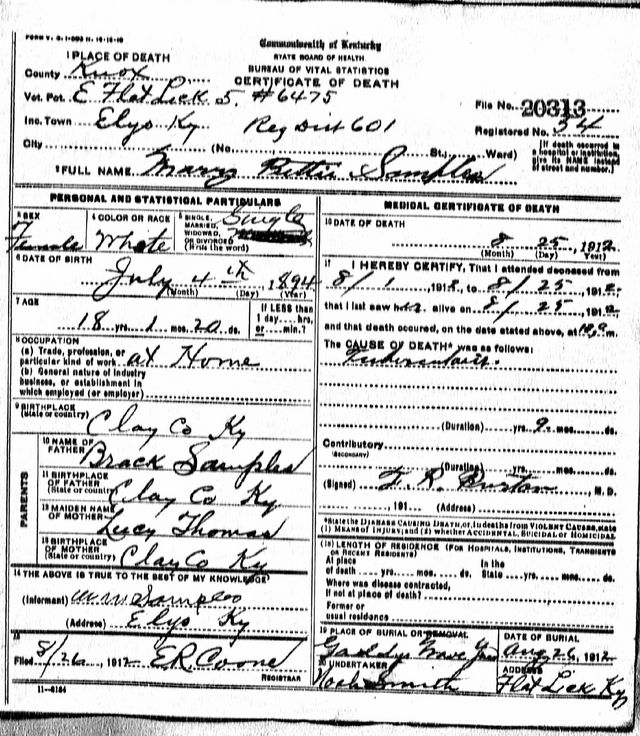 FORM V. S. 1-
Commonwealth of Kentucky
STATE BOARD OF HEALTH
BUREAU OF VITAL STATISTICS
CERTIFICATE OF DEATH
1 PLACE OF DEATH
County Knox
Vot. Pct. E Flat Lick 5. #6475
File No. 20313
Inc. Town Elys Ky Reg Dist 601
Registered No. 34
City (No. St., Ward)
[If death occurred in a hospital or institution, give its NAME instead of street and number.]
2 FULL NAME Mary Bettie Samples
PERSONAL AND STATISTICAL PARTICULARS
3 SEX Female
4 COLOR OR RACE White
5 SINGLE, MARRIED, WIDOWED, OR DIVORCED (Write the word) Single
6 DATE OF BIRTH
July 4th, 1894
(Month) (Day) (Year)
7 AGE
18 yrs. 1 mos. 20 ds.
If LESS than 1 day....hrs. or....min.?
8 OCCUPATION
(a) Trade, profession, or particular kind of work at Home
(b) General nature of industry business, or establishment in which employed (or employer)
9 BIRTHPLACE (State or country) Clay Co Ky
PARENTS
10 NAME OF FATHER Brack Samples
11 BIRTHPLACE OF FATHER (State or country) Clay Co Ky
12 MAIDEN NAME OF MOTHER Lucy Thomas
13 BIRTHPLACE OF MOTHER (State or country) Clay Co Ky
14 THE ABOVE IS TRUE TO THE BEST OF MY KNOWLEDGE
(Informant) W W Samples
(Address) Elys Ky
15
Filed 8/26, 1912 ER Coone
REGISTRAR
11-8184
MEDICAL CERTIFICATE OF DEATH
16 DATE OF DEATH
8 25, 1912
(Month) (Day) (Year)
17 I HEREBY CERTIFY, That I attended deceased from
8/1 1912, to 8/25, 1912,
that I last saw her alive on 8/25, 1912,
and that death occured, on the date stated above, at m.
The CAUSE OF DEATH* was as follows:
Tuberculosis.
(Duration) yrs. 9 mos. ds.
Contributory
(SECONDARY)
(Duration) yrs. mos. ds.
(Signed) F. R. Burton, M. D.
, 191 (Address)
*State the DISEASE CAUSING DEATH, or, in deaths from VIOLENT CAUSES, state (1) MEANS OF INJURY; and (2) whether ACCIDENTAL, SUICIDAL or HOMICIDAL
18 LENGTH OF RESIDENCE (FOR HOSPITALS, INSTITUTIONS, TRANSIENTS OR RECENT RESIDENTS)
At place of death yrs. mos. ds. In the State yrs. mos. ds.
Where was disease contracted,
If not at place of death?
Former or usual residence
19 PLACE OF BURIAL OR REMOVAL
Gaddys Grave Yard
DATE OF BURIAL
Aug 26, 1912
20 UNDERTAKER
Noah Smith
ADDRESS
Flat Lick Ky